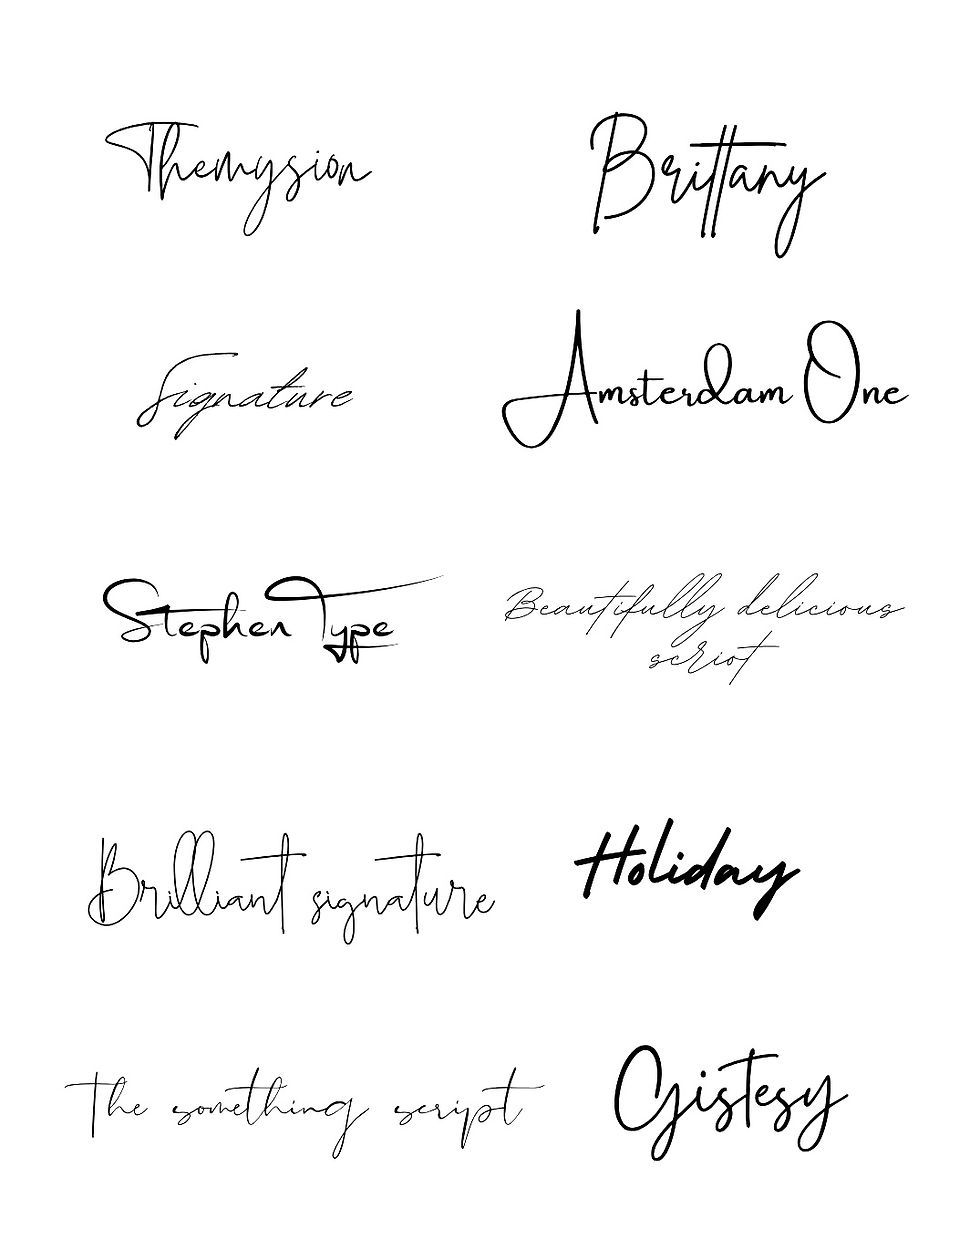 Themysion
Brittany
Signature
Amsterdam One
Stephen Type
Beautifully delicious
scriot
Brilliant signature
Holiday
The something script
Gistesy